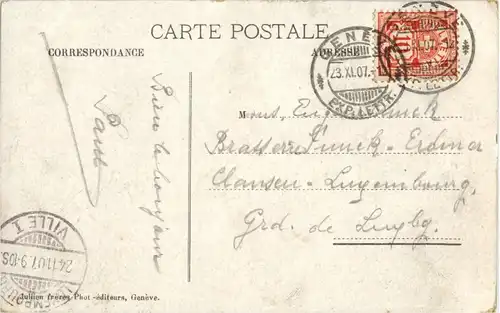 CARTE POSTALE
CORRESPONDANCE
ADRESSE
GENÈVE
23.XI.07.
EXP. LETTR.
10
Bien le bonjour
M
Mons. Eug. Funck
Brasserie Funck-Erdmer
Clausen-Luxembourg
Grd. de Luxbg.
VILLE I
24.11.07. 9-10S.
Jullien frères Phot.-éditeurs, Genève.